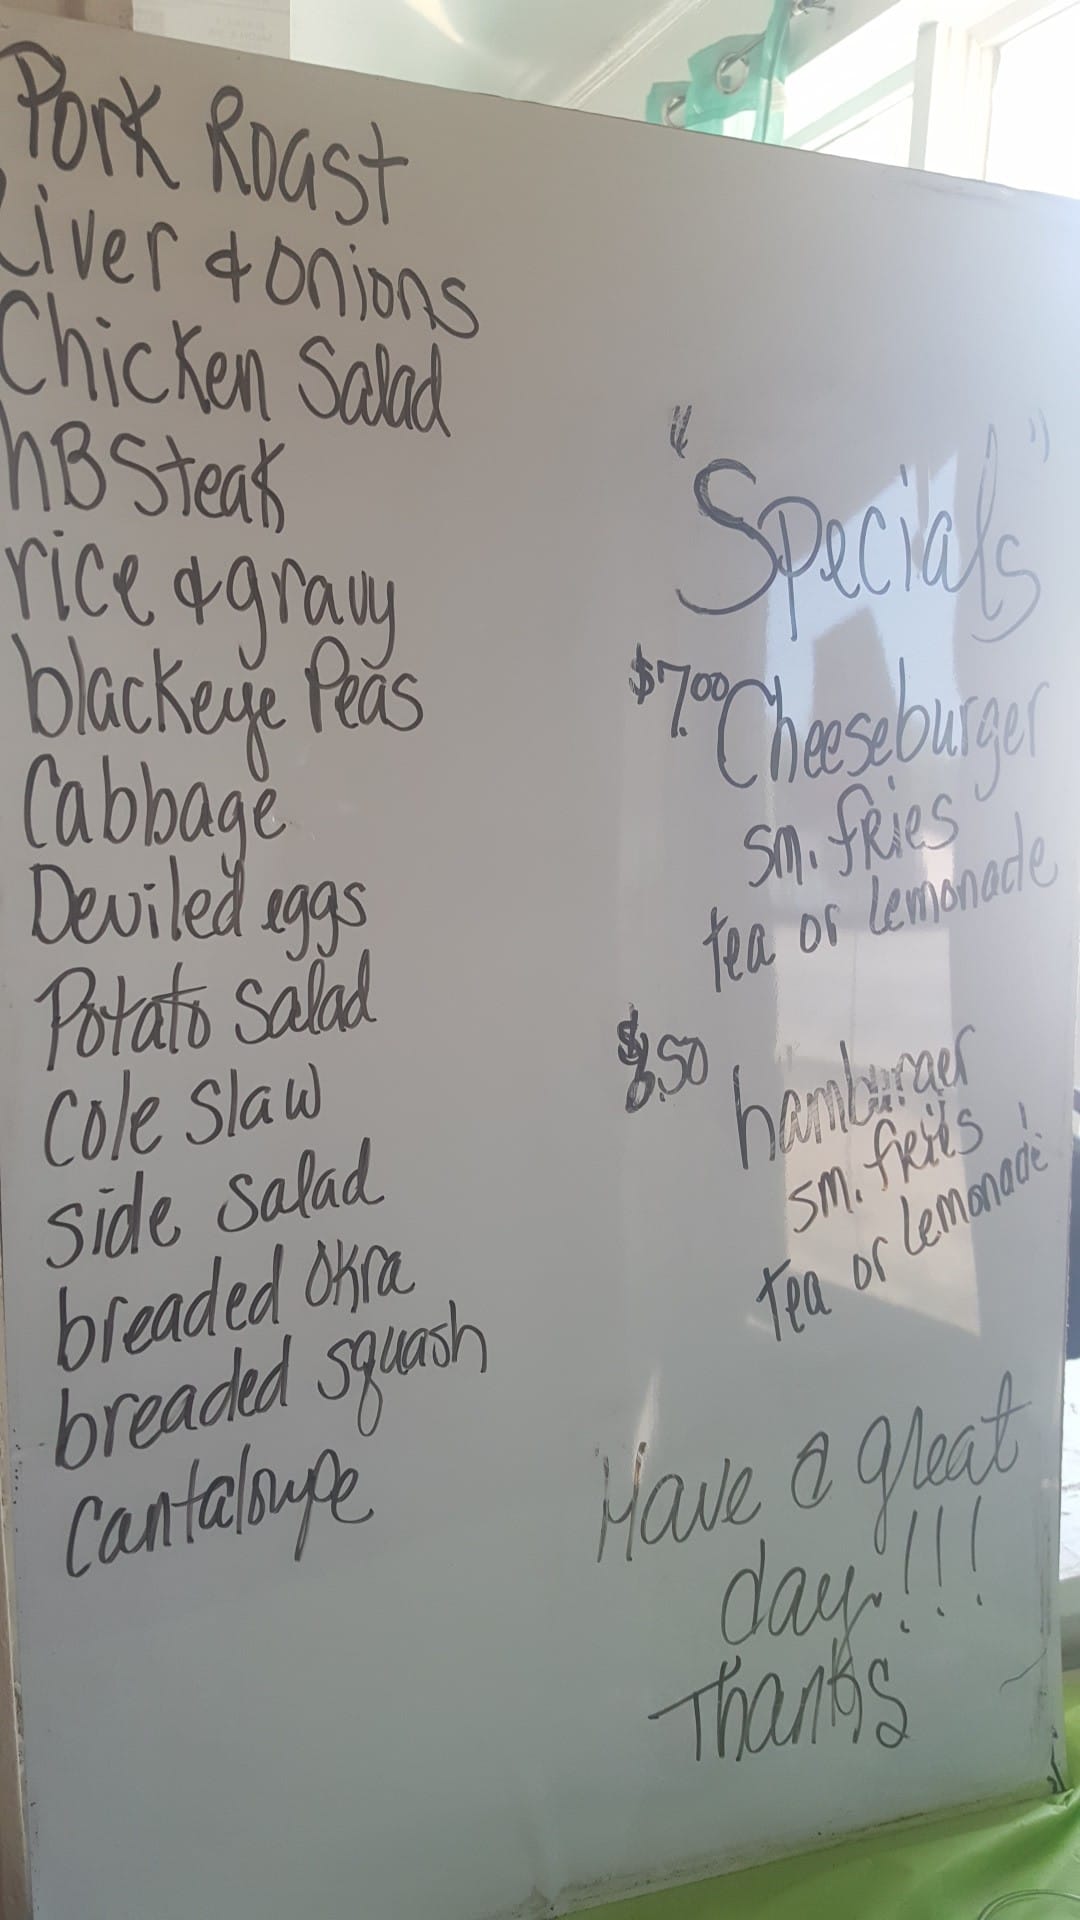 Pork Roast
Liver & onions
Chicken Salad
hB Steak
rice & gravy
blackeye Peas
Cabbage
Deviled eggs
Potato Salad
Cole Slaw
side Salad
breaded Okra
breaded squash
Cantaloupe
"Specials"
$7.00 Cheeseburger
sm. fries
tea or Lemonade
hamburger
sm. fries
tea or Lemonade
Have a great
day!!!
Thanks